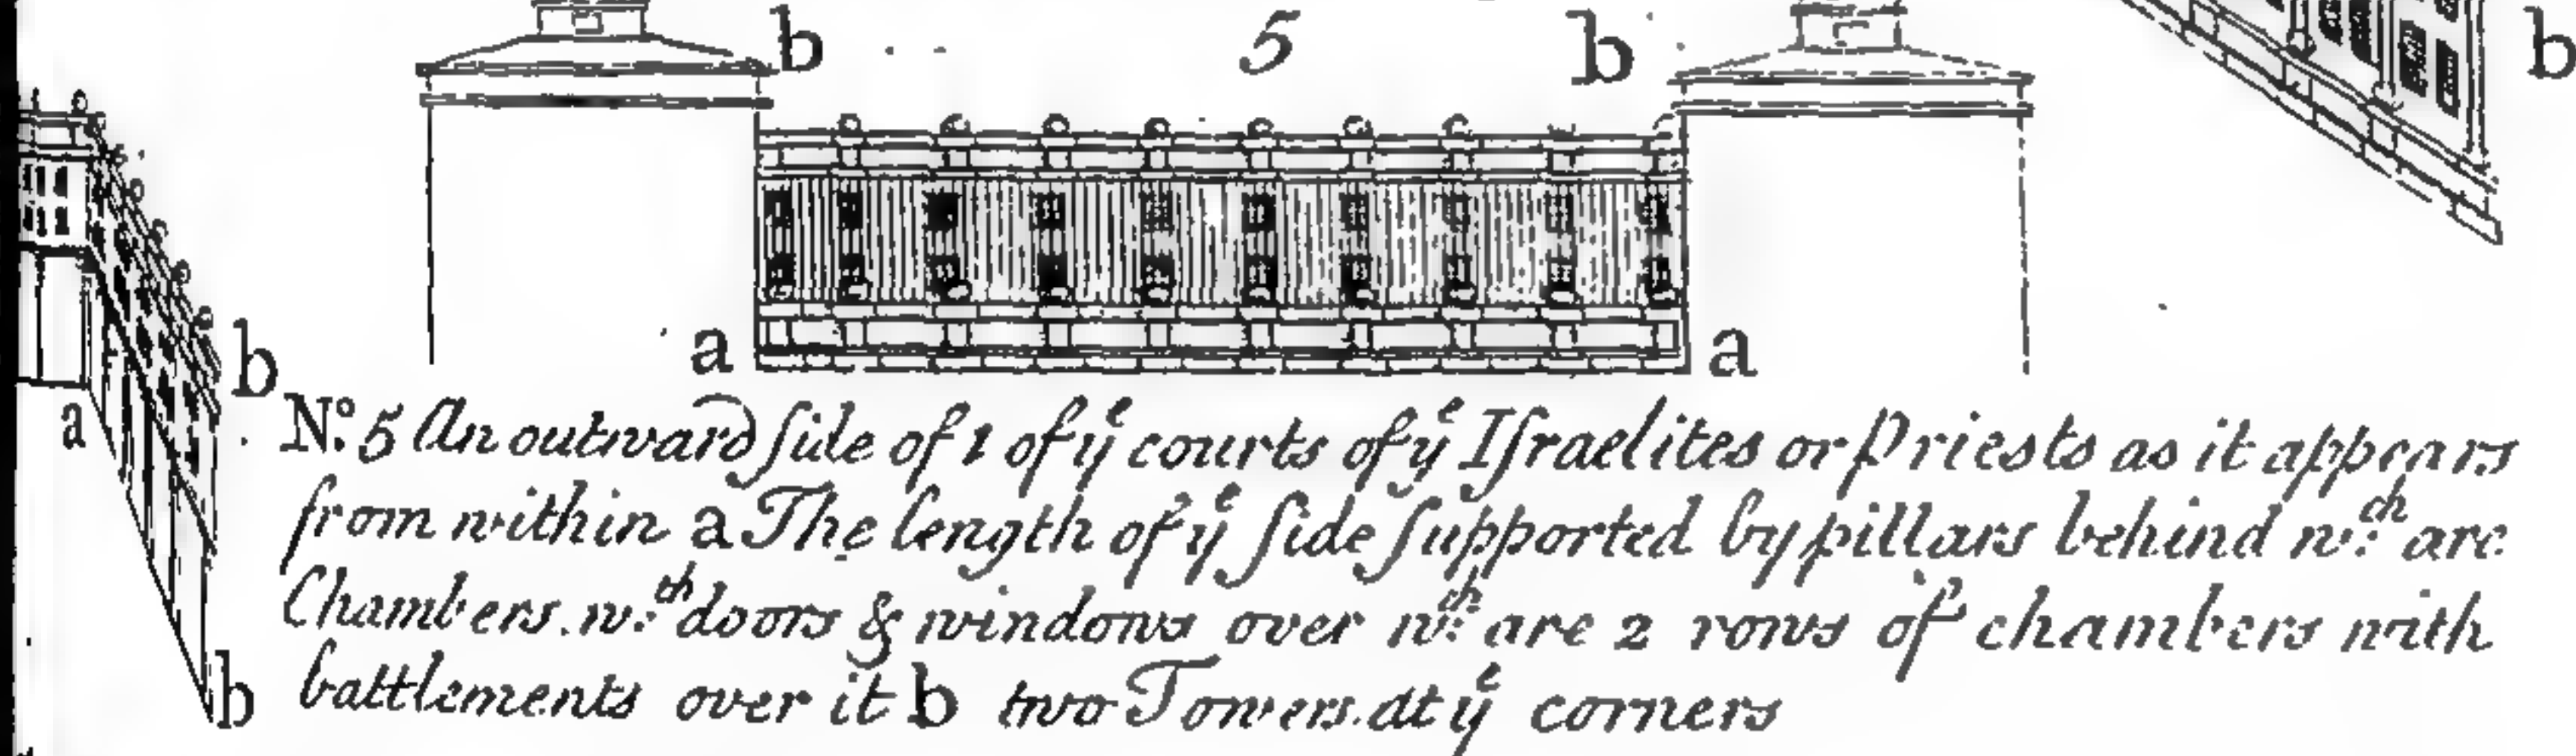 b 5 b b
a a
b
a
Nº. 5 An outward ſide of 1 of yᵉ courts of yᵉ Iſraelites or Priests as it appears
from within a The length of yᵉ ſide ſupported by pillars behind w:ᶜʰ are
Chambers. w:ᵗʰ doors & windows over w:ᶜʰ are 2 rows of chambers with
battlements over it b two Towers. at yᵉ corners
b